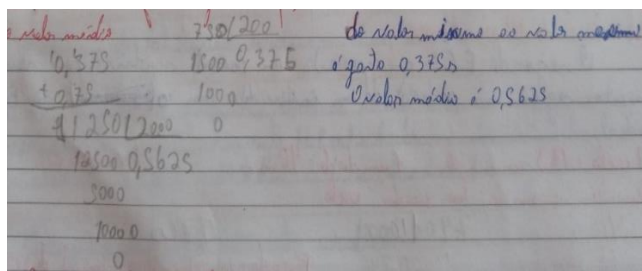 o valor médio
0,375
+ 0,75
1,1250/2000
12500 0,5625
5000
10000
0
750/200
1500 0,375
1000
0
do valor mínimo ao valor maximo
é gasto 0,375s
O valor médio é 0,5625